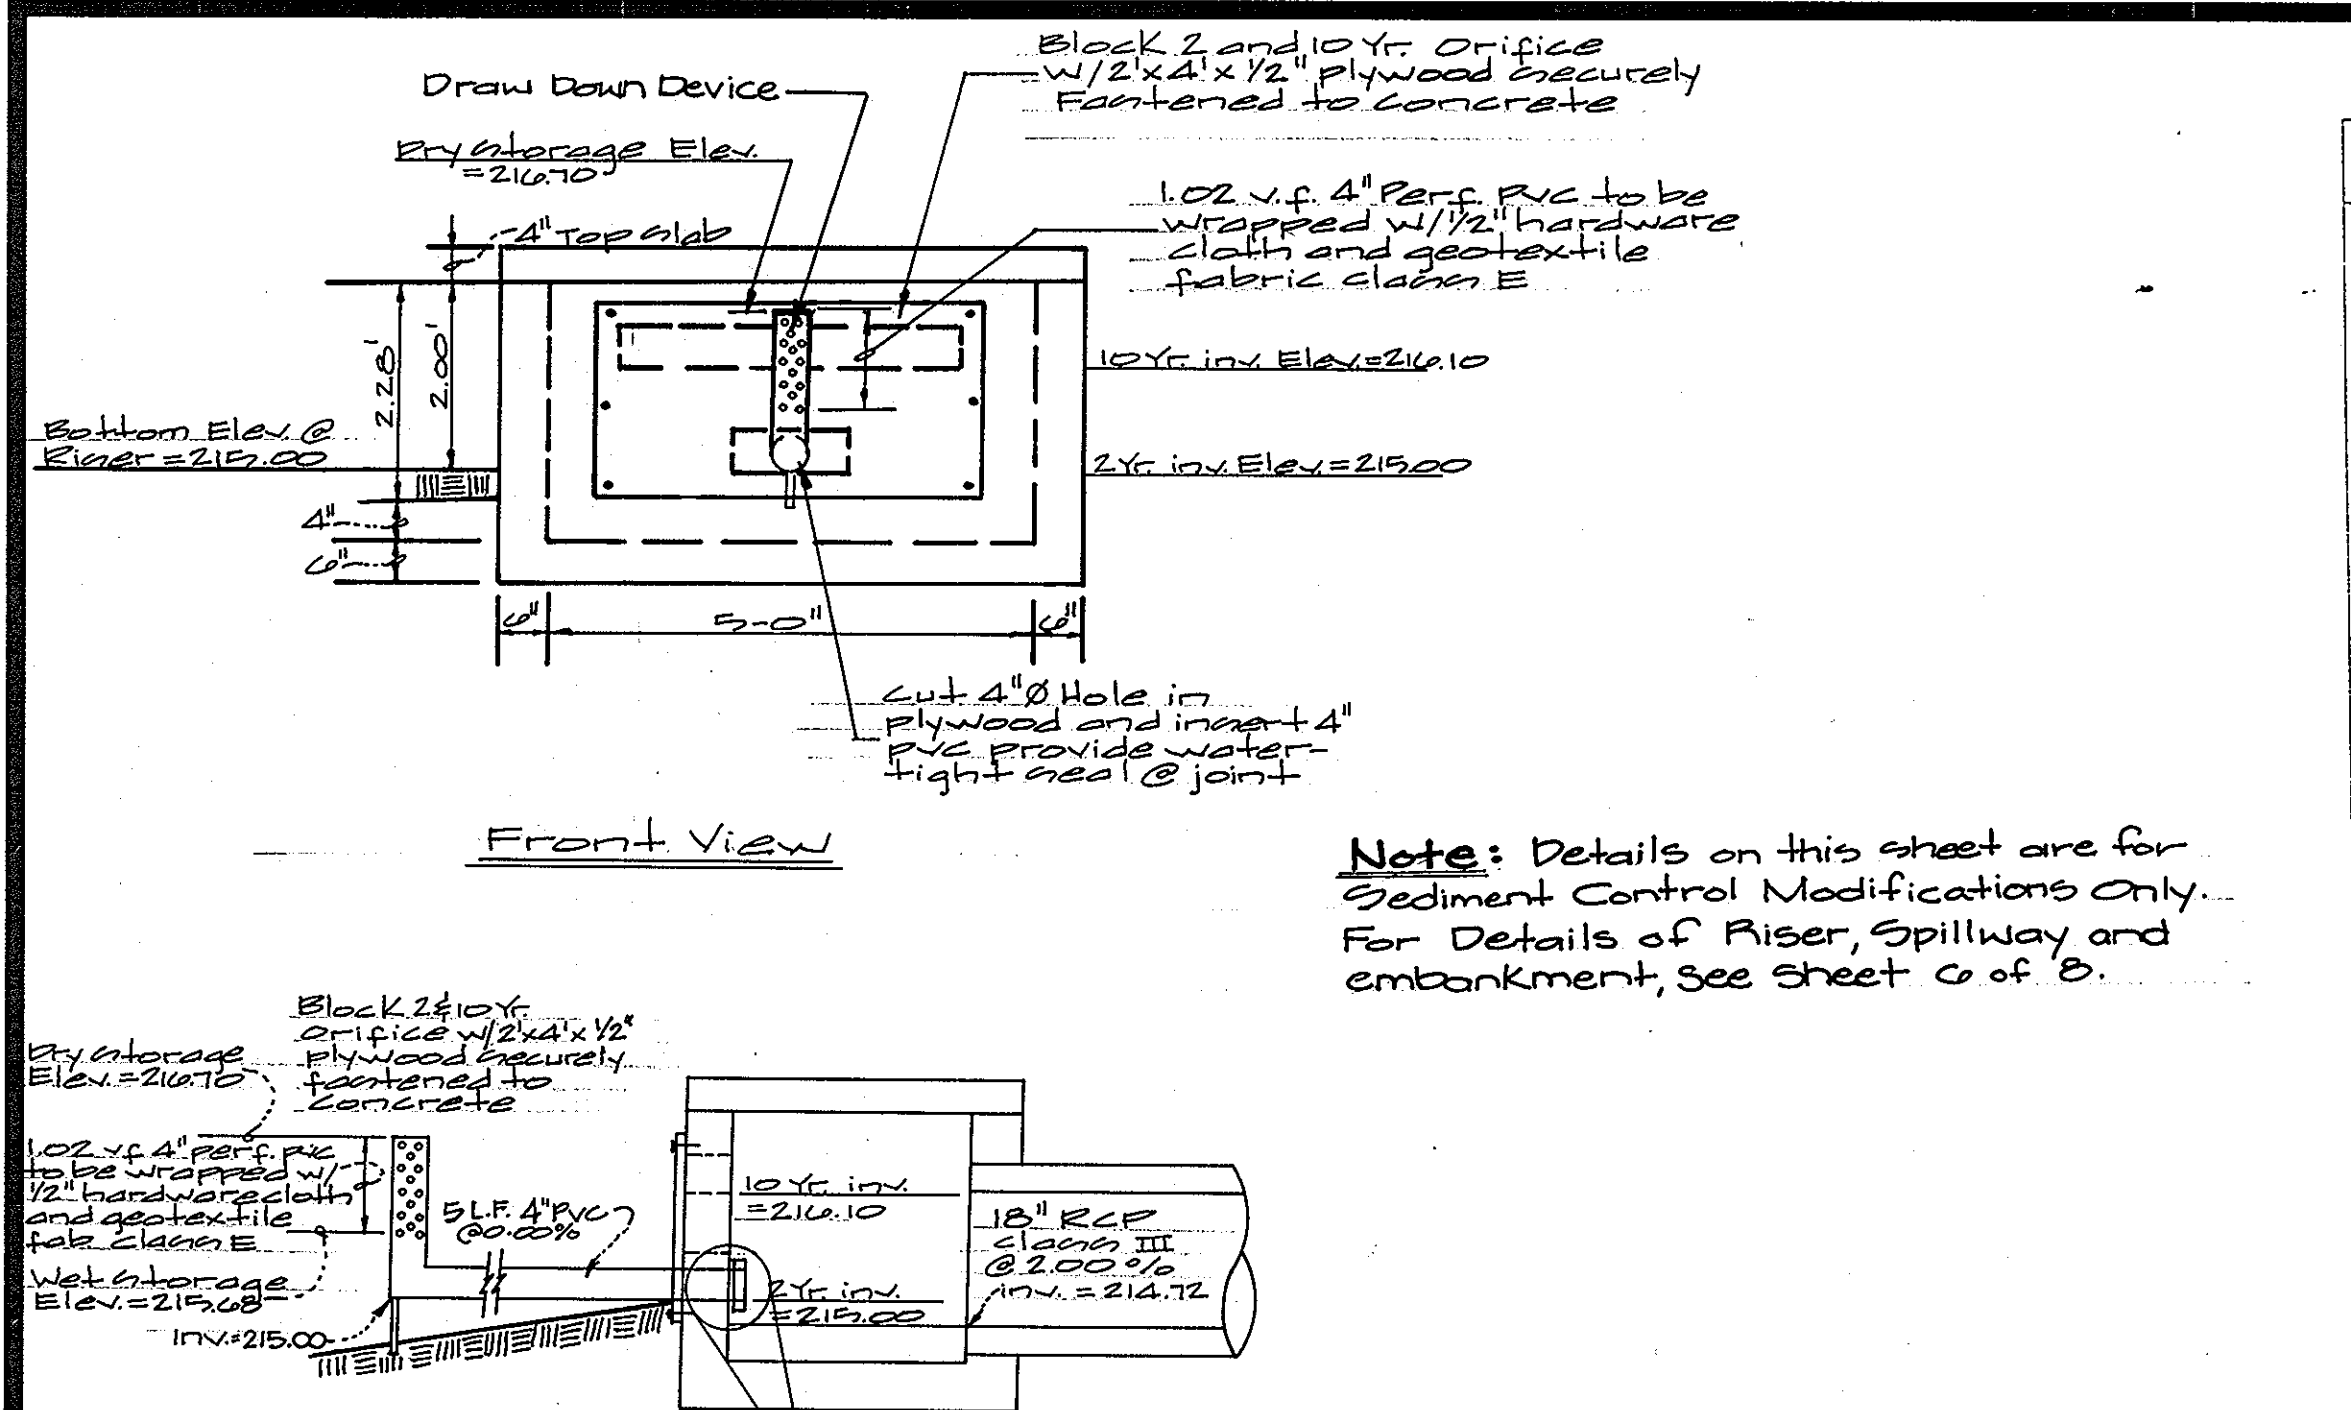 Block 2 and 10 Yr. Orifice
w/2'x4'x 1/2" plywood securely
Fastened to concrete
Draw Down Device
Dry Storage Elev.
=216.70
1.02 v.f. 4" Perf. PVC to be
wrapped w/1/2" hardware
cloth and geotextile
fabric class E
4" Top Slab
2.28'
2.00'
10 Yr. inv. Elev.=216.10
Bottom Elev. @
Riser = 215.00
2 Yr. inv. Elev.=215.00
4"
6"
6"
5-0"
6"
Cut 4"Ø Hole in
plywood and insert 4"
pvc provide water-
tight seal @ joint
Front View
Note: Details on this sheet are for
Sediment Control Modifications Only.
For Details of Riser, Spillway and
embankment, see sheet 6 of 8.
Block 2 & 10 Yr.
Orifice w/2'x4'x 1/2"
plywood securely
fastened to
concrete
Dry Storage
Elev.=216.70
1.02 v.f. 4" perf. pvc
to be wrapped w/
1/2" hardware cloth
and geotextile
fab. class E
5 L.F. 4" PVC
@0.00%
Wet Storage
Elev.=215.68
Inv.=215.00
10 Yr. inv.
=216.10
2 Yr. inv.
=215.00
18" RCP
class III
@ 2.00 %
inv. = 214.72